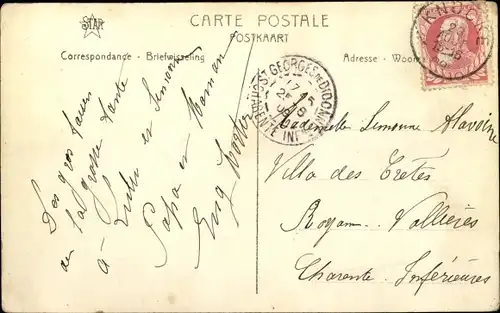 STAR
CARTE POSTALE
POSTKAART
Correspondance - Briefwisseling
Adresse - Woon
KNOCKE
ST GEORGES DE DIDONNE
17 45
25 8
CHARENTE INF
Des gros baisers
de la grosse tante
à Lulu et Simone
Papa et Maman
Mademoiselle Simonne Alavoine
Villa des Crêtes
Royan - Vallières
Charente Inférieures